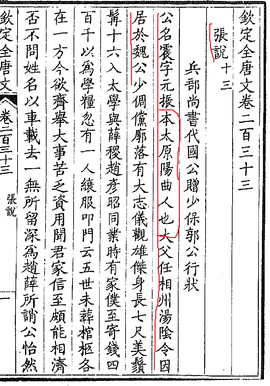 欽定全唐文卷二百三十三
張說十三
兵部尚書代國公贈少保郭公行狀
公名震字元振本太原陽曲人也大父任相州湯陰令因
居於魏公少倜儻廓落有大志儀觀雄傑身長七尺美鬚
髯十六入太學與薛稷趙彥昭同業時有家僕至寄錢四
百千以爲學糧忽有一人縗服叩門云五世未葬棺柩各
在一方今欲齊舉大事苦乏資用聞君家信至頗能相濟
否不問姓名以車載去一無所留深爲趙薛所誚公怡然
欽定全唐文
卷二百三十三
張說
一